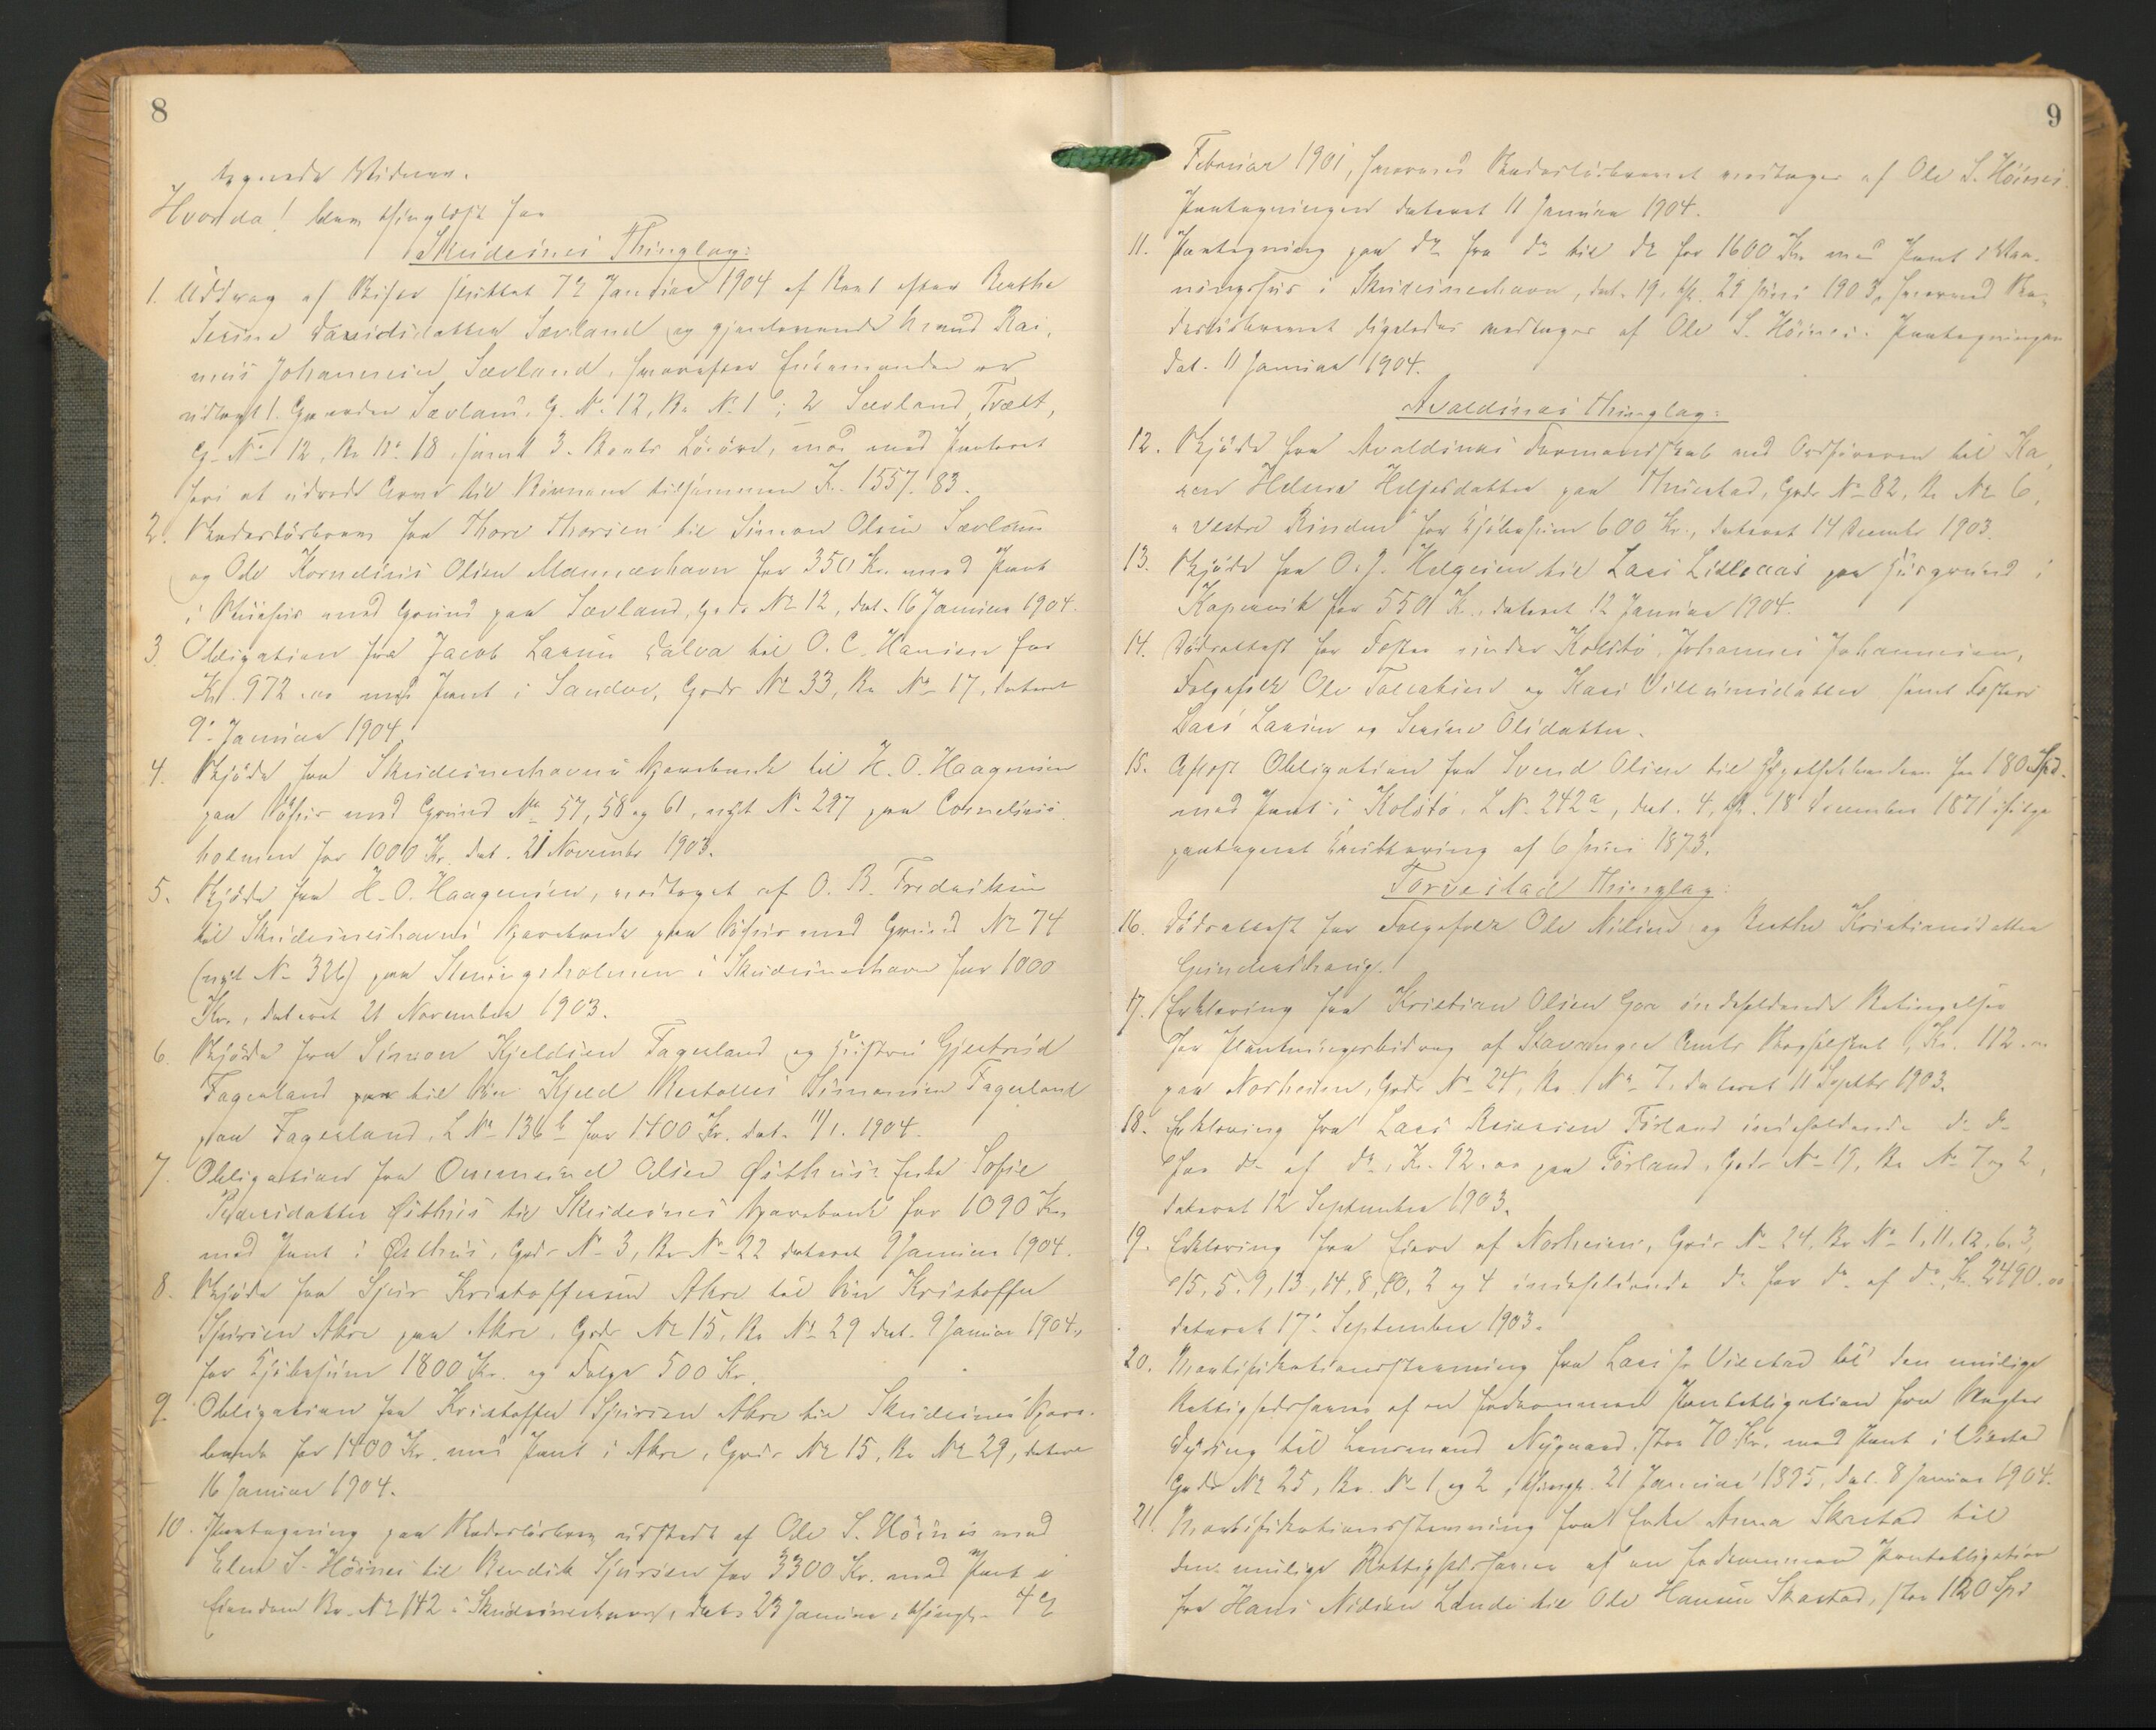 8
tegnede Vidner.
Hvorda! blev thinglæst fra
Skudesnes Thinglag:
1. Uddrag af Skifte sluttet 7de Januar 1904 af Boet efter Berthe
Serine Davidsdatter Sævland og gjenlevende Mand Ras-
mus Johannesen Sævland, hvorefter Enkemanden er
udlagt 1. Gaarden Sævland, G. No 12, Br. No 1 b; 2 Sævland, Træet,
G. No 12, Br. No 18, samt 3. Boets Løsøre, mod med Panteret
heri at udrede Arv til Børnene tilsammen K. 1557.83.
2. Skadesløsbrev fra Thore Thorsen til Simon Olsen Sævland
og Ole Kornelius Olsen Mannæshavn for 350 Kr. med Pant
i Vaahus med Grund paa Sævland, Gaards No 12, dat. 16 Januar 1904.
3. Obligation fra Jacob Larsen Dalva til O. C. Hansen for
Kr. 972.00 med Pant i Sandve, Gards No 33, Br. No 17, dateret
9. Januar 1904.
4. Skjøde fra Skudesneshavns Sparebank til H. O. Haagensen
paa Søhus med Grund No 57, 58 og 61, nyt No 297 paa Cornelius
holmen for 1000 Kr. dat. 21 November 1903.
5. Skjøde fra H. O. Haagensen, vedtaget af O. B. Fredriksen
til Skudesneshavns Sparebank paa Søhus med Grund No 74
(nyt No 326) paa Steiningsholmen i Skudesneshavn for 1000
Kr., dateret 21 November 1903.
6. Skjøde fra Simon Kjeldsen Fagerland og Hustru Gjertrud
Fagerland paa til Søn Kjeld Simonsen Fagerland
paa Fagerland, L No 136 b for 1400 Kr. dat. 11/1. 1904.
7. Obligation fra Ommund Olsen Østhus' Enke Sofie
Pedersdatter Østhus til Skudesnes Sparebank for 1090 Kr.
med Pant i Østhus, Gards No 3, Br. No 22 dateret 9 Januar 1904.
8. Skjøde fra Sjur Kristoffersen Akre til Søn Kristoffer
Sjursen Akre paa Akre, Gards No 15, Br. No 29 dat. 9 Januar 1904,
for Kjøbesum 1800 Kr. og Folge 500 Kr.
9. Obligation fra Kristoffer Sjursen Akre til Skudesnes Spare-
bank for 1400 Kr. med Pant i Akre, Gards No 15, Br. No 29, dateret
16 Januar 1904.
10. Paategning paa Skadesløsbrev udstedt af Ole S. Høines med
Elen S. Høines til Bendik Sjursen for 3300 Kr. med Pant i
Eiendom Br. No 142 i Skudesneshavn, dat. 23 Januar, thingl. 4de
9
Februar 1901, hvorved Skadesløsbrevet vedtages af Ole S. Høines.
Paategningen dateret 11 Januar 1904.
11. Paategning paa do fra do til do for 1600 Kr. med Pant i Vaa-
ningshus i Skudesneshavn, dat. 19, thl. 29 Juni 1903, hvorved Ska-
desløsbrevet ligeledes vedtages af Ole S. Høines. Paategningen
dat. 11 Januar 1904.
Avaldsnes Thinglag:
12. Skjøde fra Avaldsnes Formandskab ved Ordføreren til Ka-
ren Helene Heljesdatter paa Thuestad, Gards No 82, Br. No 6,
"Vestre Rinden" for Kjøbesum 600 Kr., dateret 14 Decembr 1903.
13. Skjøde fra O. J. Helgesen til Lars Lilleaas paa Husgrund i
Kopervik for 550 K., dateret 12 Januar 1904.
14. Dødsattest for Føster under Kolstø, Johannes Johannesen,
Folgefolk Ole Tollaksen og Kari Villumsdatter samt Føstere
Lars Larsen og Serine Olsdatter.
15. Obligation fra Svend Olsen til for 180 Spd.
med Pant i Kolstø, L No 242 a, dat. 4, thl. 18 December 1871 ifølge
paategnet Kvittering af 6 Juni 1873.
Torvestad Thinglag:
16. Dødsattest for Folgefolk Ole Nilsen og Berthe Kristiansdatter
Gundershaug.
17. Erklæring fra Kristian Olsen Gare indeholdende Betingelser
for Plantningsbidrag af Stavanger Amts Skogselskab, Kr. 112.00
paa Norheim, Gards No 24, Br. No 7, dateret 11 Septbr 1903.
18. Erklæring fra Lars Førland indeholdende do do
for do af do, Kr. 92.00 paa Førland, Gards No 19, Br. No 7 og 2,
dateret 12 September 1903.
19. Erklæring fra Eiere af Norheim, Gards No 24, Br. No 1, 11, 12, 6, 3,
15, 5, 9, 13, 14, 8, 10, 2 og 4 indeholdende do for do af do, K. 2490.00
dateret 17. September 1903.
20. Mortifikationsstevning fra Lars J. Visstad til den mulige
Rettighedshaver af en forkommen Pantobligation fra
til Lensmand Nygaard, stor 70 Kr. med Pant i Visstad
Gards No 25, Br. No 1 og 2, thingl. 21 Januar 1895, dat. 8 Januar 1904.
21. Mortifikationsstevning fra Enke Anna Skrstad til
den mulige Rettighedshaver af en forkommen Pantobligation
fra Hans Nilsen Lande til Ole Hansen Skastad, stor 120 Spd